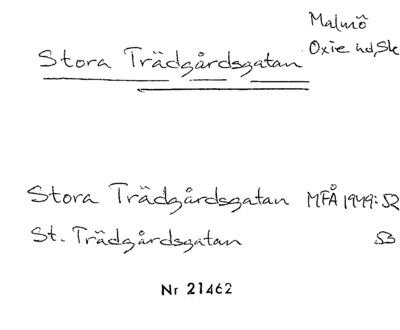 Malmö
Stora Trädgårdsgatan Oxie hd, Sk
Stora Trädgårdsgatan MFÅ 1949: 52
St. Trädgårdsgatan 53
Nr 21462